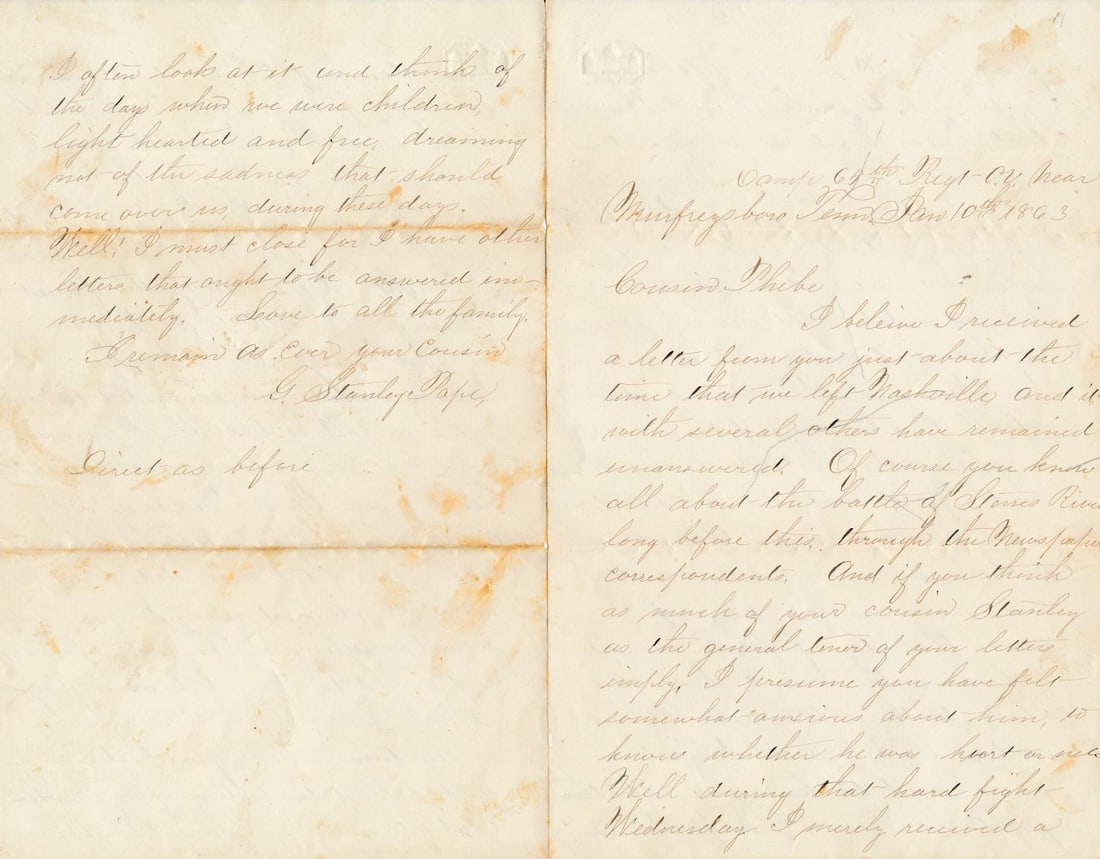 I often look at it and think of
the days when we were children,
light hearted and free, dreaming
not of the sadness that should
come over us during these days.
Well! I must close for I have other
letters that ought to be answered im-
mediately. Love to all the family.
I remain as ever your cousin
G. Stanley Pope,
Direct as before
11
Camp 64th Regt O.V. Near
Murfreysboro Tenn. Jan 10th 1863
Cousin Phebe
I beleive I received
a letter from you just about the
time that we left Nashville, and it
with several others have remained
unanswered. Of course you know
all about the battle of Stones River
long before this, through the Newspaper
correspondents. And if you think
as much of your cousin Stanley
as the general tener of your letters
imply, I presume you have felt
somewhat anxious about him, to
know whether he was hurt or not.
Well during that hard fight
Wednesday I merely received a